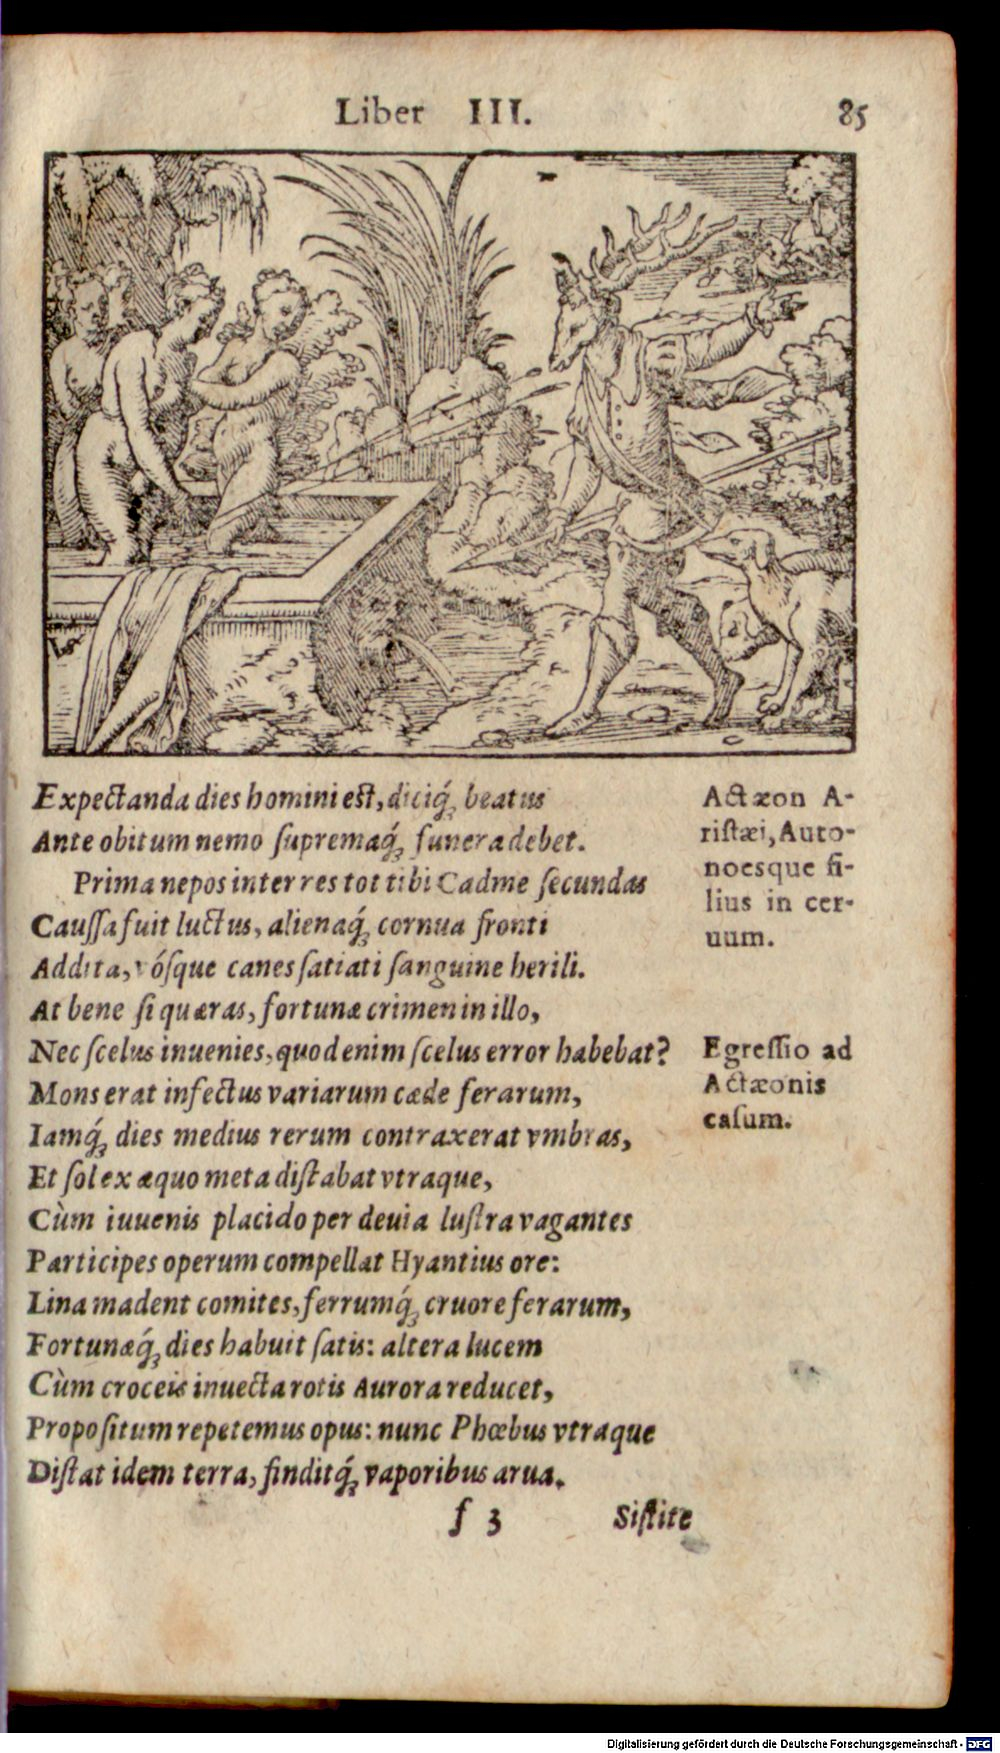 Liber III. 85
Expectanda dies homini est, diciq́; beatus
Ante obitum nemo ſupremaq́; funera debet.
Prima nepos inter res tot tibi Cadme ſecundas
Cauſſa fuit luctus, alienaq́; cornua fronti
Addita, vóſque canes ſatiati ſanguine herili.
At bene ſi quæras, fortunæ crimen in illo,
Nec ſcelus inuenies, quod enim ſcelus error habebat?
Mons erat infectus variarum cæde ferarum,
Iamq́; dies medius rerum contraxerat vmbras,
Et ſol ex æquo meta diſtabat vtraque,
Cùm iuuenis placido per deuia luſtra vagantes
Participes operum compellat Hyantius ore:
Lina madent comites, ferrumq́; cruore ferarum,
Fortunæq́; dies habuit ſatis: altera lucem
Cùm croceis inuecta rotis Aurora reducet,
Propoſitum repetemus opus: nunc Phœbus vtraque
Diſtat idem terra, finditq́; vaporibus arua.
Actæon A-
riſtæi, Auto-
noesque fi-
lius in cer-
uum.
Egreſſio ad
Actæonis
caſum.
f 3 Siſtite
Digitalisierung gefördert durch die Deutsche Forschungsgemeinschaft - DFG